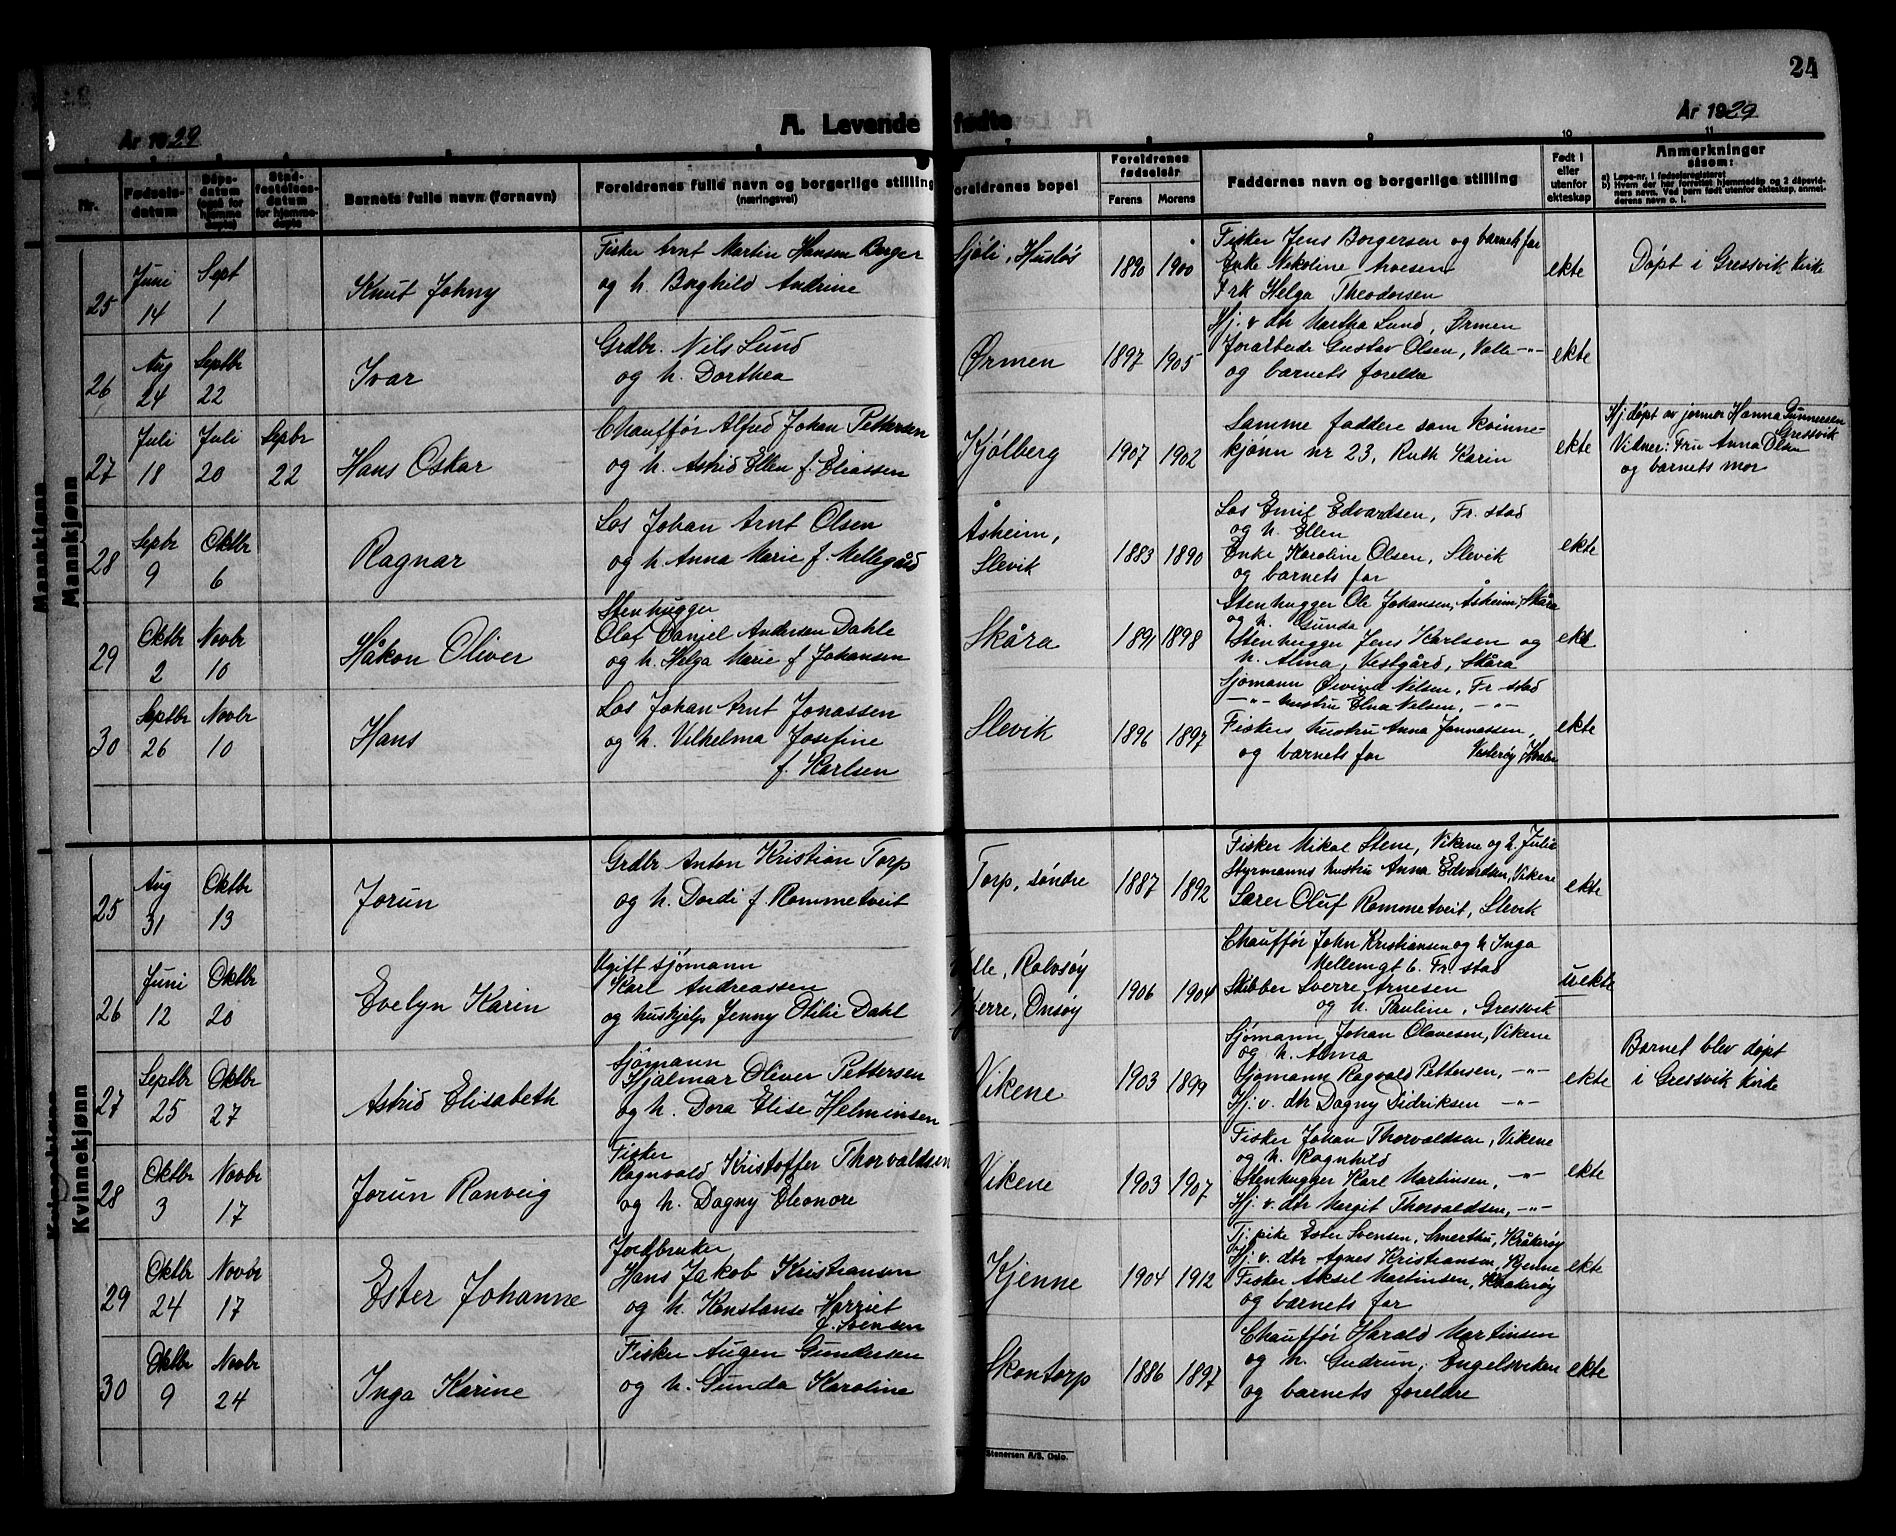 24
År 1929
A. Levende fødte
År 1929
Nr.
Fødsels-
datum
Dåps-
datum
(også for
hjemme
døpte)
Stad-
festelses-
datum
for hjemme-
døpte
Barnets fulle navn (fornavn)
Foreldrenes fulle navn og borgerlige stilling
(næringsvei)
Foreldrenes bopel
Foreldrenes
fødselsår
Farens
Morens
Faddernes navn og borgerlige stilling
Født i
eller
utenfor
ekteskap
Anmerkninger
såsom:
a) Løpe-nr. i fødselsregisteret
b) Hvem der har forrettet hjemmedåp og 2 dåpsvid-
ners navn. Ved barn født utenfor ekteskap, anmel-
derens navn o. l.
Mannkjønn
25
Juni
14
Sept
1
Knut Johny
Fisker Arnt Martin Hansen Borger
og h. Borghild Andrine
Sjøli, Husløs
1890
1900
Fisker Jens Borgersen og barnets far
Enke Nikoline
Frk Helga Theodorsen
ekte
Døpt i Gressvik kirke
26
Aug
24
Septbr
22
Ivar
Grdbr. Nils Lund
og h. Dorthea
Ørmen
1897
1905
Hj. v. dtr Martha Lund, Ørmen
Gustav Olsen, Valle -"-
og barnets foreldre
ekte
27
Juli
18
Juli
20
Sepbr
22
Hans Oskar
Chauffør Alfred Johan Pettersen
og h. Astrid Ellen f. Eliassen
Kjølberg
1907
1902
Samme faddere som kvinne-
kjønn nr 23, Ruth Karin
ekte
Hj. døpt av jormor Hanna Gunnersen
Gressvik
Vidner: Fru Anna Olsen
og barnets mor
28
Sepbr
9
Oktbr
6
Ragnar
Los Johan Arnt Olsen
og h. Anna Marie f. Mellegård
Åsheim,
Slevik
1883
1890
Los Emil Edvardsen, Fr. stad
og h. Ellen
Enke Karoline Olsen, Slevik
og barnets far
ekte
29
Oktbr
2
Novbr
10
Håkon Oliver
Stenhugger
Olaf Danjel Andersen Dahle
og h. Helga Marie f. Johansen
Skåra
1891
1898
Stenhugger Ole Johansen, Åsheim, Skåra
og h. Gunda
Stenhugger Jens Karlsen og
h. Alma, Vestgård, Skåra
ekte
30
Septbr
26
Novbr
10
Hans
Los Johan Arnt Jonassen
og h. Vilhelma Josefine
f. Karlsen
Slevik
1896
1897
Sjømann Øivind Nilsen, Fr. stad
-"- hustru Elna Nilsen, -"-
Fiskers hustru Anna Jonnassen,
og barnets far Vesterøy Hvaler
ekte
Kvinnekjønn
25
Aug
31
Oktbr
13
Jorun
Grdbr Anton Kristian Torp
og h. Dordi f. Rommetveit
Torp, søndre
1887
1892
Fisker Mikal Stene, Vikene og h. Julie
Styrmanns hustru Anna Edvardsen, Vikene
Lærer Oluf Rommetveit, Slevik
ekte
26
Juni
12
Oktbr
20
Evelyn Karin
Ugift sjømann
Karl Andreassen
og hushjelp Jenny Otilie Dahl
Rolvsøy
Onsøy
1906
1904
Chauffør John Kristiansen og h Inga
Mellemgt 6. Fr. stad
Skibber Sverre Arnesen
og h. Pauline, Gressvik
uekte
27
Septbr
25
Oktbr
27
Astrid Elisabeth
Sjømann
Hjalmar Oliver Pettersen
og h. Dora Elise Helminsen
Vikene
1903
1899
Sjømann Johan Olavesen, Vikene
og h. Alma
Sjømann Ragvald Pettersen, -"-
Hj. v. dtr Dagny Didriksen -"-
ekte
Barnet blev døpt
i Gressvik kirke
28
Oktbr
3
Novbr
17
Jorun Ranveig
Fisker
Ragnvald Kristoffer Thorvaldsen
og h. Dagny Eleonore
Vikene
1903
1907
Fisker Johan Thorvaldsen, Vikene
og h. Ragnhild
Stenhugger Karl Martinsen, -"-
Hj. v. dtr Margit Thorvaldsen, -"-
ekte
29
Oktbr
24
Novbr
17
Ester Johanne
Jordbruker
Hans Jakob Kristiansen
og h. Konstanse Harriet
f. Svensen
Kjenne
1904
1912
Tj. pike Ester Svensen, Smerthu, Kråkerøy
Hj. v. dtr Agnes Kristiansen, Kjenne
Fisker Aksel Martinsen, Kråkerøy
og barnets far
ekte
30
Oktbr
9
Novbr
24
Inga Karine
Fisker Augen Gundersen
og h. Gunda Karoline
Skontorp
1886
1897
Chauffør Harald Martinsen
og h. Gudrun, Engelsviken
og barnets foreldre
ekte
Stenersen A/S. Oslo.